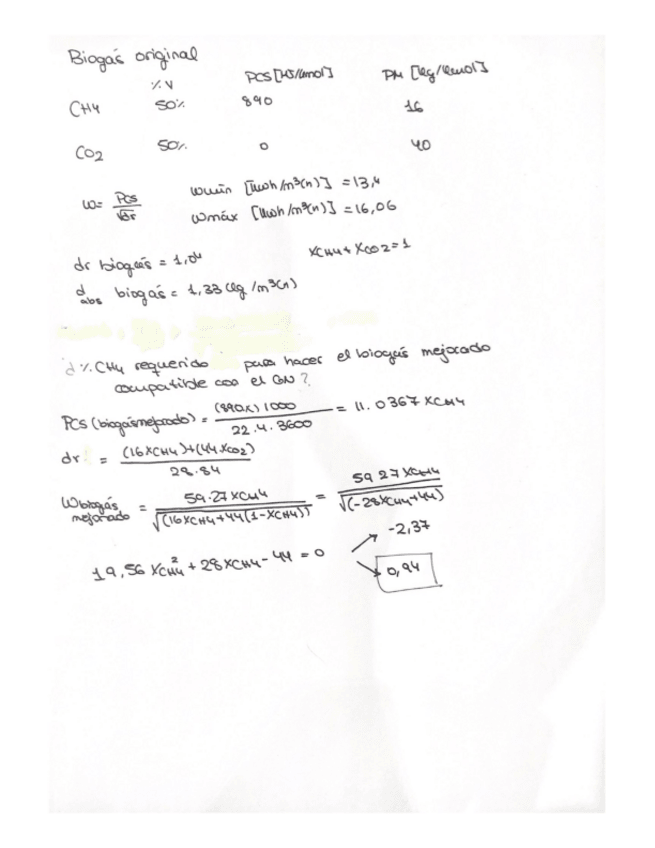 Biogás original
% V PCS [kJ/kmol] PM [kg/kmol]
CH4 50% 890 16
CO2 50% 0 40
W = PCS/√dr Wmín [kwh/m³(n)] = 13,4
Wmáx [kwh/m³(n)] = 16,06
dr biogás = 1,04 XCH4 + XCO2 = 1
d abs biogás = 1,33 (kg/m³(n))
¿ % CH4 requerido para hacer el biogás mejorado
compatible con el GN?
PCS (biogás mejorado) = (890x) 1000 / 22.4.3600 = 11.0367 XCH4
dr = (16XCH4)+(44.XCO2) / 28.84
W biogás mejorado = 59.27 XCH4 / √(16XCH4+44(1-XCH4)) = 59 27 XCH4 / √(-28XCH4+44)
19,56 XCH4² + 28XCH4 - 44 = 0 -2,37
0,94